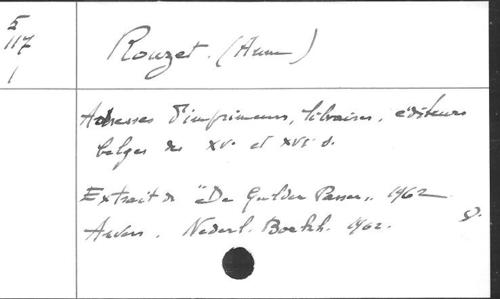 5
117
1
Rouzet. (Anne)
Adresses d'imprimeurs, libraires, éditeurs
belges des XVe et XVIe s.
Extrait de "De Gulden Passer„. 1962
Anvers. Nederl. Boekh. 1962.
8°.